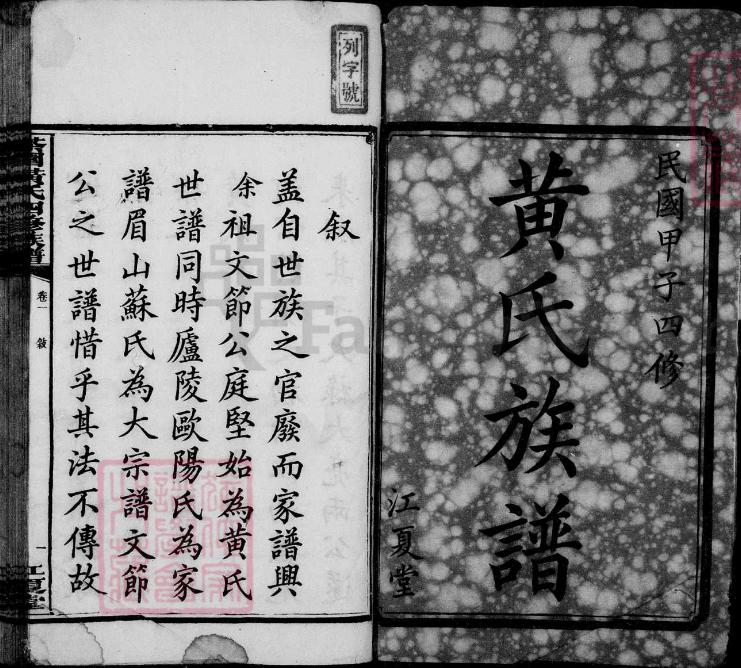 民國甲子四修
黃氏族譜
江夏堂
列字號
叙
盖自世族之官廢而家譜興
余祖文節公庭堅始為黃氏
世譜同時廬陵歐陽氏為家
譜眉山蘇氏為大宗譜文節
公之世譜惜乎其法不傳故
黃氏四修族譜
卷一
敘
一
江夏堂